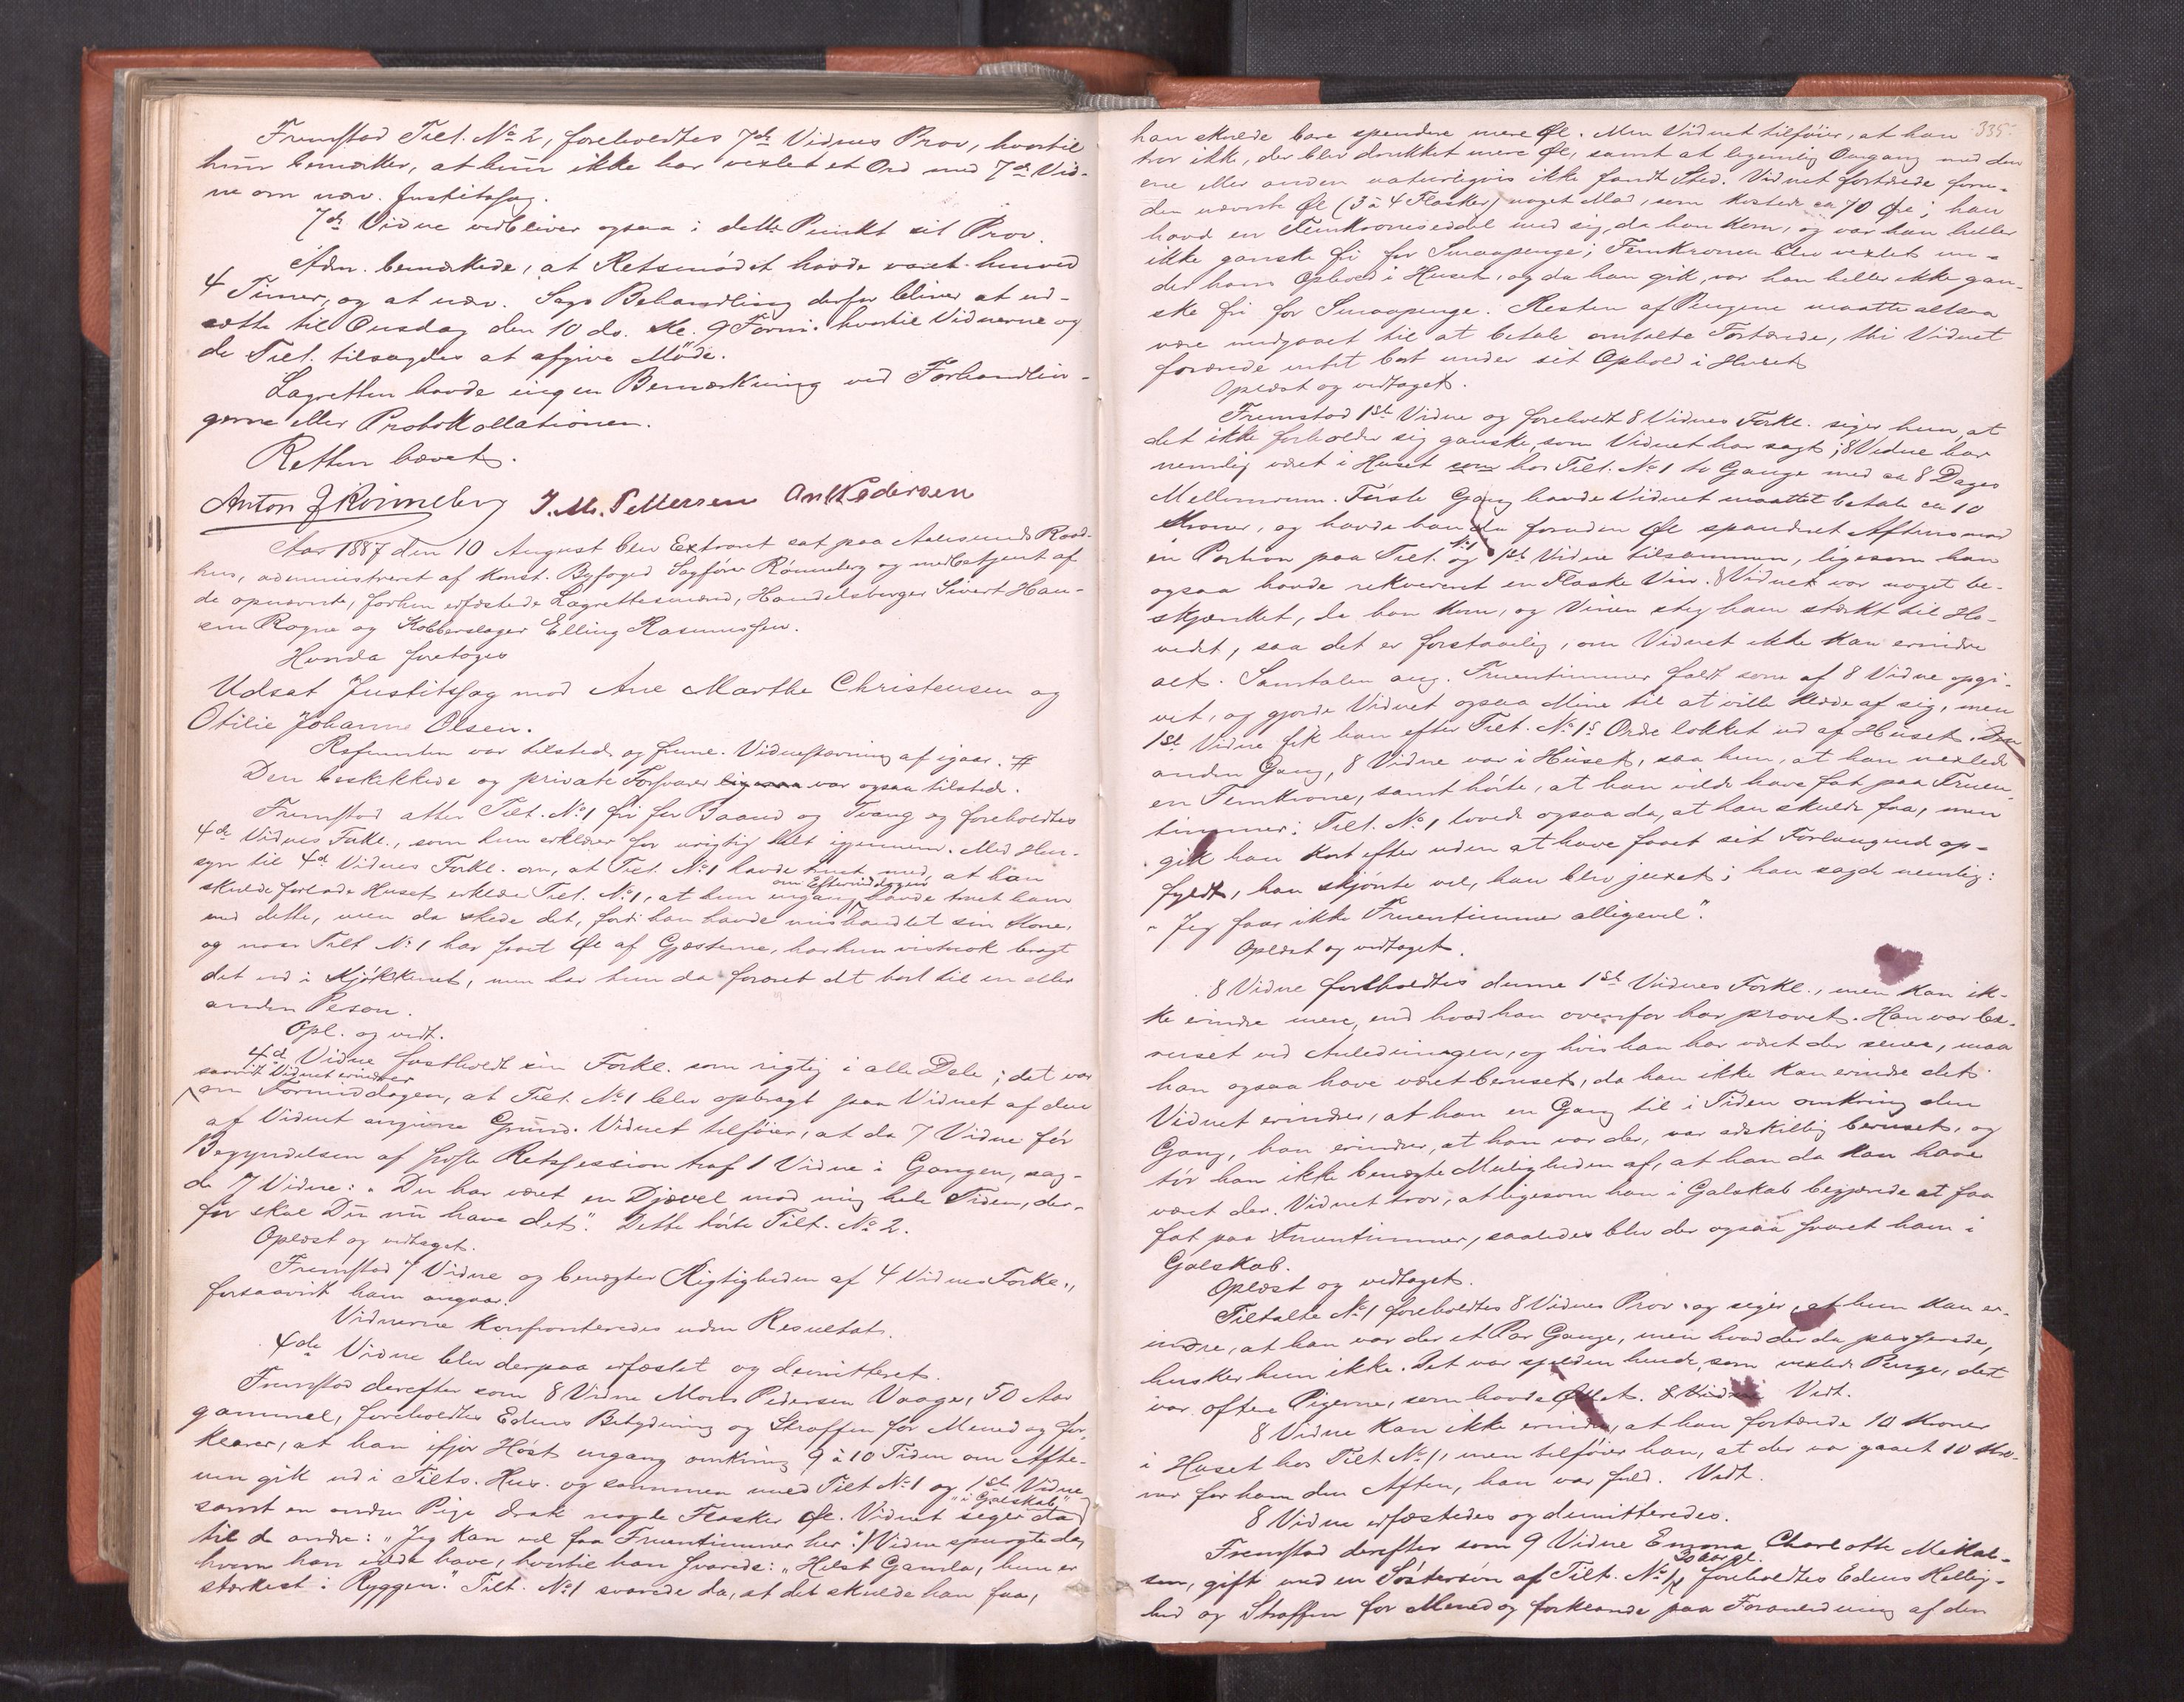 Fremstod Tilt. No 2, foreholdtes 7de Vidnes Prov, hvortil
hun bemærker, at hun ikke har vexlet et Ord med 7de Vid-
ne om nærv. Justitssag.
7de Vidne vedbliver ogsaa i dette Punkt sit Prov.
Adm. bemærkede, at Retsmödet havde varet henved
4 Timer, og at nærv. Sags Behandling derfor bliver at ud-
sætte til Onsdag den 10 ds. Kl. 9 Form. hvortil Vidnerne og
de Tilt. tilsagdes at afgive Möde.
Lagretten havde ingen Bemærkning ved Forhandlin-
gerne eller Protokollationen.
Retten hævet.
Anton J Rönneberg J. M. Pettersen An Pedersen
Aar 1887 den 10 August blev Extraret sat paa Aalesunds Raad-
hus, administreret af konst. Byfoged Sagförer Rönneberg og medbetjent af
de opnævnte, forhen edfæstede Lagrettesmænd, Handelsborger Sivert Han-
sen Rogne og Kobberslager Elling Rasmussen.
Hvorda foretoges
Udsat Justitssag mod Ane Marthe Christensen og
Otilie Johanne Olsen.
Referenten var tilstede og freml. Vidnestævning af igaar. #
Den beskikkede og private Forsvarer ligesaa var ogsaa tilstede.
Fremstod atter Tilt. No 1 fri for Baand og Tvang og foreholdtes
4de Vidnes Forkl., som hun erklærer for urigtig helt igjennem. Med Hen-
syn til 4de Vidnes Forkl. om, at Tilt. No 1 havde truet med, at han
skulde forlade Huset erklærer Tilt. No 1, at hun engang om Eftermiddagen havde truet ham
med dette, men da skede det, fordi han havde mishandlet sin Kone,
og naar Tilt. No 1 har faaet Øl af Gjæsterne, har hun vistnok bragt
det ud i Kjökkenet, men har hun da foræret det bort til en eller
anden Person.
Opl. og vedt.
4de Vidne fastholdt sin Forkl. som rigtig i alle Dele; det var
saavidt Vidnet erindrer
om Formiddagen, at Tilt. No 1 blev opbragt paa Vidnet af den
af Vidnet angivne Grund. Vidnet tilföier, at da 7 Vidne för
Begyndelsen af første Retssession traf 1 Vidne i Gangen, sag-
de 7 Vidne: "Du har været en Djævel mod mig hele Tiden, der-
for skal Du nu have det". Dette hörte Tilt. No 2.
Oplæst og vedtaget.
Fremstod 7 Vidne og benægter Rigtigheden af 4 Vidnes Forkl.,
forsaavidt ham angaar.
Vidnerne konfronteredes uden Resultat.
4de Vidne blev derpaa edfæstet og dimitteret.
Fremstod derefter som 8 Vidne Mons Pedersen Vaage, 50 Aar
gammel, foreholdtes Edens Betydning og Straffen for Mened og for-
klarer, at han ifjor Höst engang omkring 9 à 10 Tiden om Afte-
nen gik ud i Tilts. Hus og sammen med Tilt No 1 og 1ste Vidne
samt en anden Pige drak nogle Flasker Øl. Vidnet siger da "i Galskab"
til de andre: "Jeg kan vel faa Fruentimmer her". 1 Vidne spurgte da,
hvem han vilde have, hvortil han svarede: "Helst Gamla, hun er
stærkest i Ryggen." Tilt. No 1 svarede da, at det skulde han faa,
335.
han skulde bare spendere mere Øl. Men Vidnet tilföier, at han
tror ikke, der blev drukket mere Øl, samt at legemlig Omgang med den
ene eller anden naturligvis ikke fandt Sted. Vidnet fortærede foru-
den nævnte Øl (3 à 4 Flasker) noget Mad, som kostede ca 70 Øre; han
havd en Femkroneseddel med sig, da han kom, og var han heller
ikke ganske fri for Smaapenge; Femkronen blev vexlet un-
der hans Ophold i Huset, og da han gik, var han heller ikke gan-
ske fri for Smaapenge. Resten af Pengene maatte altsaa
være medgaaet til at betale omtalte Fortærede, thi Vidnet
forærede intet bort under sit Ophold i Huset
Oplæst og vedtaget.
Fremstod 1ste Vidne og foreholdt 8 Vidnes Forkl. siger hun, at
det ikke forholder sig ganske, som Vidnet har sagt; 8 Vidne har
nemlig været i Huset hos Tilt. No 1 to Gange med ca 8 Dages
Mellemrum. Förste Gang havde Vidnet maattet betale ca 10
Kroner, og havde han da foruden Øl spanderet Aftensmad
en Portion paa Tilt. No 1 og 1ste Vidne tilsammen, ligesom han
ogsaa havde rekvireret en Flaske Vin. 8 Vidnet var noget be-
skjænket, da han kom, og Vinen steg ham stærkt til Ho-
vedet, saa det er forstaaelig, om Vidnet ikke kan erindre
alt. Samtalen ang. Fruentimmer faldt som af 8 Vidne opgi-
vet, og gjorde Vidnet ogsaa Mine til at ville klæde af sig, men
1ste Vidne fik ham efter Tilt. No 1s Ordre lokket ud af Huset. Den
anden Gang, 8 Vidne var i Huset, saa hun, at han vexlede
en Femkrone, samt hörte, at han vilde have fat paa Fruen-
timmer; Tilt. No. 1 lovede ogsaa da, at han skulde faa, men
gik han kort efter uden at have faaet sit Forlangende op-
fyldt, han skjönte vel, han blev juxet; han sagde nemlig:
"Jeg faar ikke Fruentimmer alligevel".
Oplæst og vedtaget.
8 Vidne foreholdtes denne 1ste Vidnes Forkl., men kan ik-
ke erindre mere, end hvad han ovenfor har provet. Han var be-
ruset ved Anledningen, og hvis han har været der senere, maa
han ogsaa have været beruset, da han ikke kan erindre det.
Vidnet erindrer, at han en Gang til i Tiden omkring den
Gang, han erindrer, at han var der, var adskillig beruset, og
tör han ikke benægte Muligheden af, at han da kan have
været der. Vidnet tror, at ligesom han i Galskab begjærede at faa
fat paa Fruentimmer, saaledes blev der ogsaa svaret ham i
Galskab.
Oplæst og vedtaget.
Tiltalte No 1 foreholdtes 8 Vidnes Prov og siger, at hun kan er-
indre, at han var der et Par Gange, men hvad der da passerede,
husker hun ikke. Det var sjelden hende, som vexlede Penge, det
var oftere Pigerne, som havde Øllet. 8 Vidne Vedt.
8 Vidne kan ikke erindre, at han fortærede 10 Kroner
i Huset hos Tilt No 1, men tilföier han, at der var gaaet 10 Kro-
ner for ham den Aften, han var fuld. Vedt.
8 Vidne edfæstedes og dimitteredes.
Fremstod derefter som 9 Vidne Emma Charlotte Mikal-
sen, gift med en Söstersön af Tilt. No 1, 30 Aar gl. foreholdtes Edens Hellig-
hed og Straffen for Mened og forklarede paa Foranledning af den